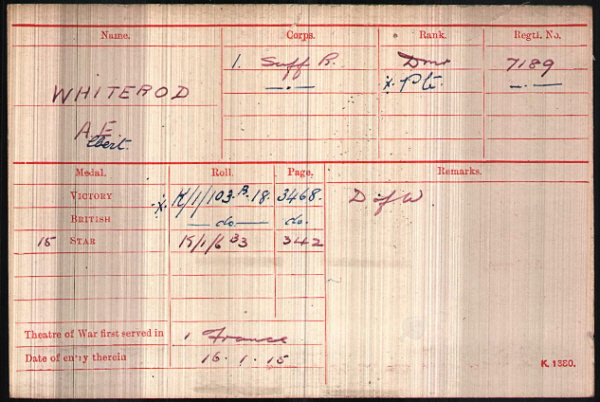 Name. Corps. Rank. Regtl. No.
1. Suff R. Dmr 7189
WHITEROD —.— x. Pte. —.—
A.E.
lbert.
Medal. Roll. Page. Remarks.
VICTORY x. K/1/103.B.18. 3468. D of W
BRITISH — do — do.
15 STAR K/1/6 B3 342
Theatre of War first served in 1 France
Date of entry therein 16.1.15
K. 1380.